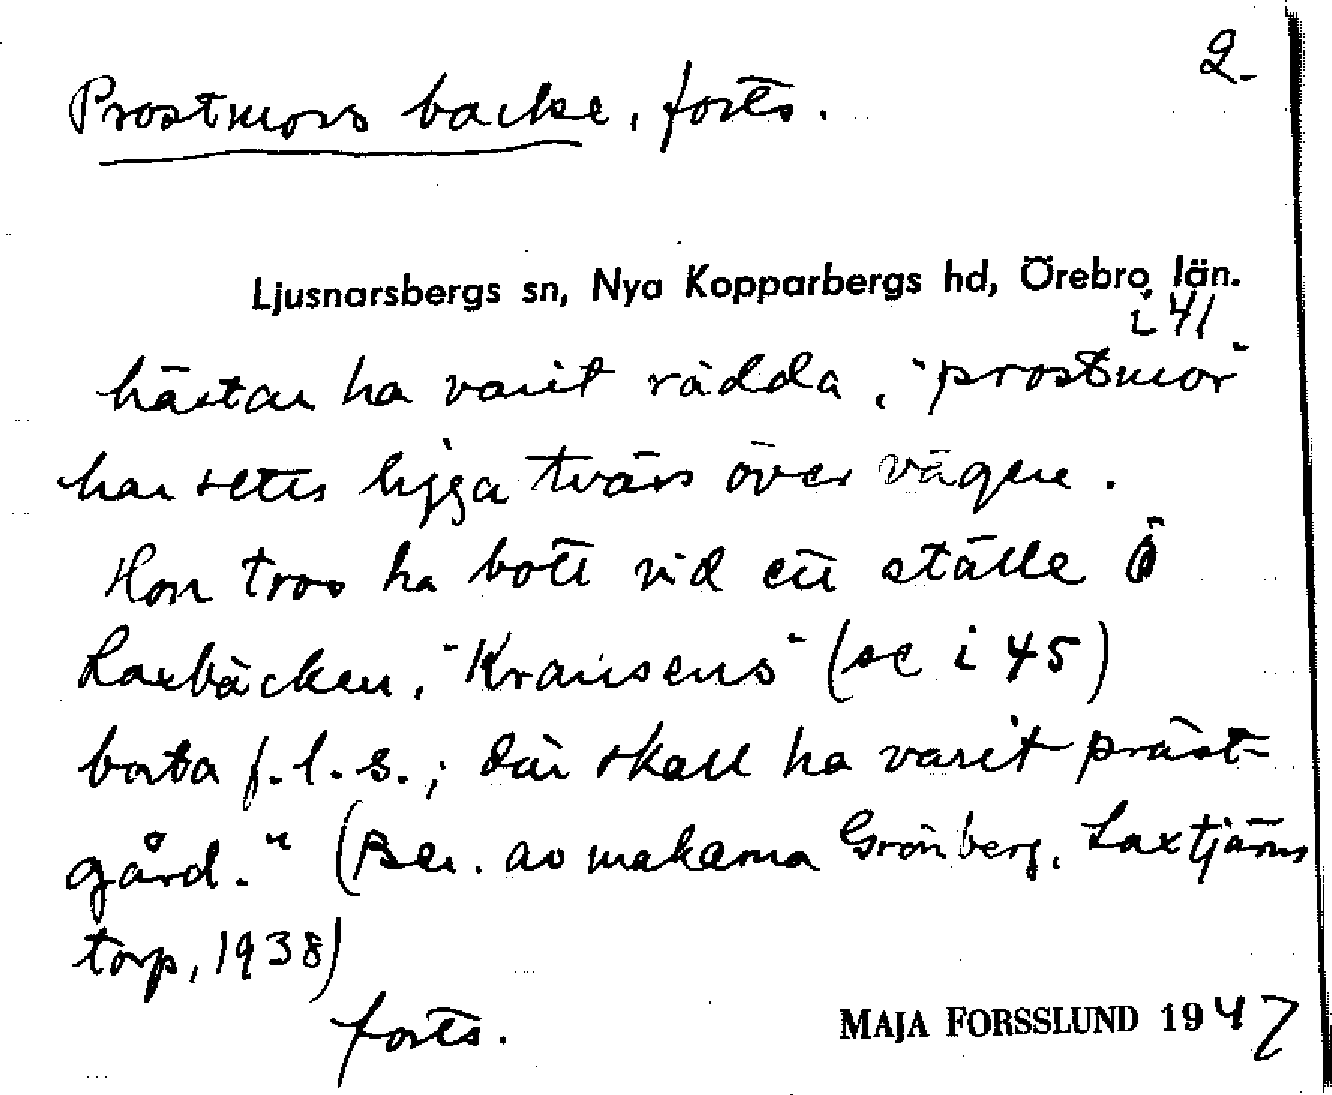 2.
Prostmors backe, forts.
Ljusnarsbergs sn, Nya Kopparbergs hd, Örebro län.
i 41
hästar ha varit rädda, "prostmor"
har setts ligga tvärs över vägen.
Hon tros ha bott vid ett ställe Ö
Laxbäcken, "Kransens" (se i 45)
borta f.l.s.; där skall ha varit präst-
gård." (Ber. av makarna Grönberg, Laxtjärns
torp, 1938)
forts.
MAJA FORSSLUND 1947